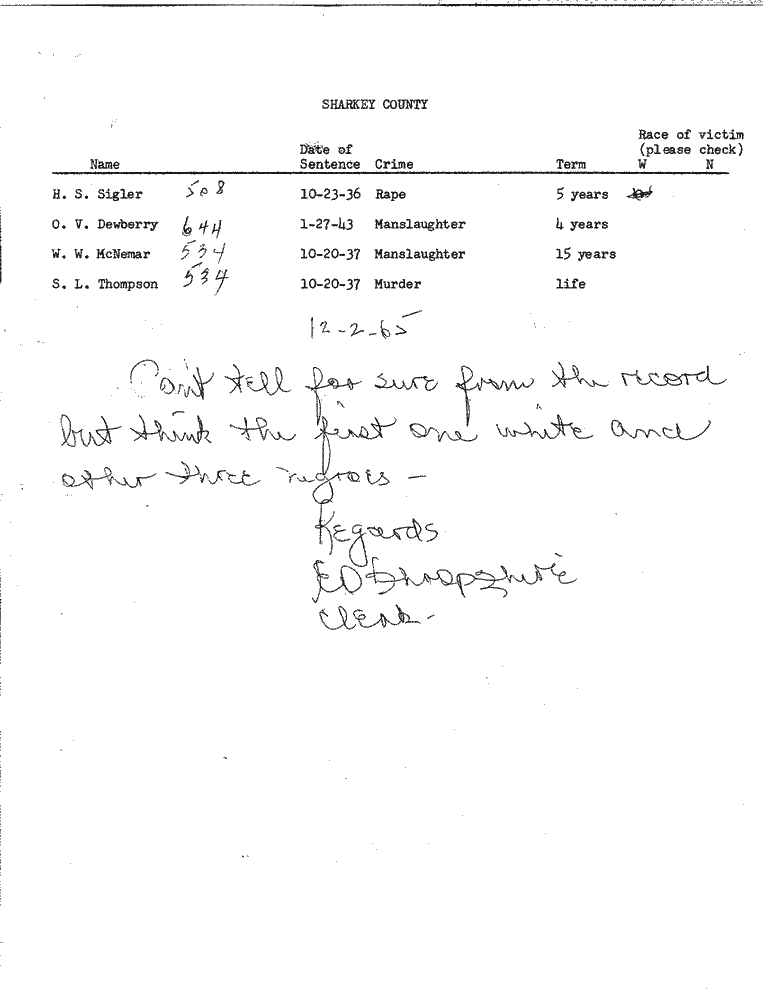 SHARKEY COUNTY
Race of victim
Date of (please check)
Name Sentence Crime Term W N
H. S. Sigler 508 10-23-36 Rape 5 years
O. V. Dewberry 644 1-27-43 Manslaughter 4 years
W. W. McNemar 534 10-20-37 Manslaughter 15 years
S. L. Thompson 534 10-20-37 Murder life
12-2-65
Can't tell for sure from the record
but think the first one white and
other three negroes —
Regards
ED Shropshire
Clerk -